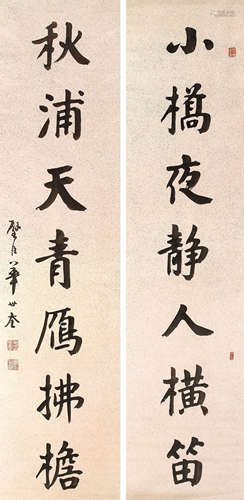 小橋夜静人橫笛
秋浦天青鴈拂檐
華世奎